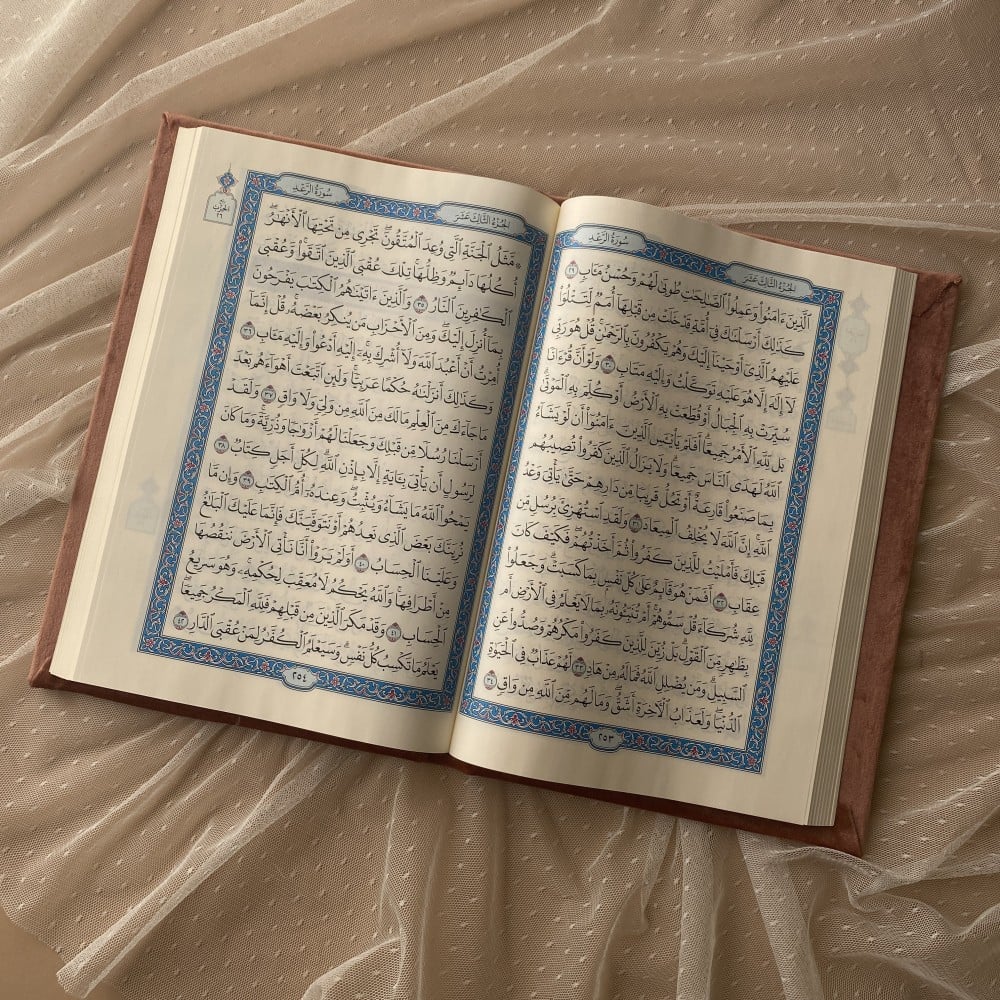 الجُزْءُ الثَّالِثَ عَشَرَ
سُورَةُ الرَّعْدِ
ٱلَّذِينَ ءَامَنُواْ وَعَمِلُواْ ٱلصَّٰلِحَٰتِ طُوبَىٰ لَهُمۡ وَحُسۡنُ مَـَٔابٖ ٢٩
كَذَٰلِكَ أَرۡسَلۡنَٰكَ فِيٓ أُمَّةٖ قَدۡ خَلَتۡ مِن قَبۡلِهَآ أُمَمٞ لِّتَتۡلُوَاْ
عَلَيۡهِمُ ٱلَّذِيٓ أَوۡحَيۡنَآ إِلَيۡكَ وَهُمۡ يَكۡفُرُونَ بِٱلرَّحۡمَٰنِۚ قُلۡ هُوَ رَبِّي
لَآ إِلَٰهَ إِلَّا هُوَ عَلَيۡهِ تَوَكَّلۡتُ وَإِلَيۡهِ مَتَابِ ٣٠ وَلَوۡ أَنَّ قُرۡءَانٗا
سُيِّرَتۡ بِهِ ٱلۡجِبَالُ أَوۡ قُطِّعَتۡ بِهِ ٱلۡأَرۡضُ أَوۡ كُلِّمَ بِهِ ٱلۡمَوۡتَىٰۗ
بَل لِّلَّهِ ٱلۡأَمۡرُ جَمِيعًاۗ أَفَلَمۡ يَاْيۡـَٔسِ ٱلَّذِينَ ءَامَنُوٓاْ أَن لَّوۡ يَشَآءُ
ٱللَّهُ لَهَدَى ٱلنَّاسَ جَمِيعٗاۗ وَلَا يَزَالُ ٱلَّذِينَ كَفَرُواْ تُصِيبُهُم
بِمَا صَنَعُواْ قَارِعَةٌ أَوۡ تَحُلُّ قَرِيبٗا مِّن دَارِهِمۡ حَتَّىٰ يَأۡتِيَ وَعۡدُ
ٱللَّهِۚ إِنَّ ٱللَّهَ لَا يُخۡلِفُ ٱلۡمِيعَادَ ٣١ وَلَقَدِ ٱسۡتُهۡزِئَ بِرُسُلٖ مِّن
قَبۡلِكَ فَأَمۡلَيۡتُ لِلَّذِينَ كَفَرُواْ ثُمَّ أَخَذۡتُهُمۡۖ فَكَيۡفَ كَانَ
عِقَابِ ٣٢ أَفَمَنۡ هُوَ قَآئِمٌ عَلَىٰ كُلِّ نَفۡسِۭ بِمَا كَسَبَتۡۗ وَجَعَلُواْ
لِلَّهِ شُرَكَآءَ قُلۡ سَمُّوهُمۡۚ أَمۡ تُنَبِّـُٔونَهُۥ بِمَا لَا يَعۡلَمُ فِي ٱلۡأَرۡضِ أَم
بِظَٰهِرٖ مِّنَ ٱلۡقَوۡلِۗ بَلۡ زُيِّنَ لِلَّذِينَ كَفَرُواْ مَكۡرُهُمۡ وَصُدُّواْ عَنِ
ٱلسَّبِيلِۗ وَمَن يُضۡلِلِ ٱللَّهُ فَمَا لَهُۥ مِنۡ هَادٖ ٣٣ لَّهُمۡ عَذَابٞ فِي ٱلۡحَيَوٰةِ
ٱلدُّنۡيَاۖ وَلَعَذَابُ ٱلۡأٓخِرَةِ أَشَقُّۖ وَمَا لَهُم مِّنَ ٱللَّهِ مِن وَاقٖ ٣٤
٢٥٣
الجُزْءُ الثَّالِثَ عَشَرَ
سُورَةُ الرَّعْدِ
۞ مَّثَلُ ٱلۡجَنَّةِ ٱلَّتِي وُعِدَ ٱلۡمُتَّقُونَۖ تَجۡرِي مِن تَحۡتِهَا ٱلۡأَنۡهَٰرُۖ
أُكُلُهَا دَآئِمٞ وَظِلُّهَاۚ تِلۡكَ عُقۡبَى ٱلَّذِينَ ٱتَّقَواْۚ وَّعُقۡبَى
ٱلۡكَٰفِرِينَ ٱلنَّارُ ٣٥ وَٱلَّذِينَ ءَاتَيۡنَٰهُمُ ٱلۡكِتَٰبَ يَفۡرَحُونَ
بِمَآ أُنزِلَ إِلَيۡكَۖ وَمِنَ ٱلۡأَحۡزَابِ مَن يُنكِرُ بَعۡضَهُۥۚ قُلۡ إِنَّمَآ
أُمِرۡتُ أَنۡ أَعۡبُدَ ٱللَّهَ وَلَآ أُشۡرِكَ بِهِۦٓۚ إِلَيۡهِ أَدۡعُواْ وَإِلَيۡهِ مَـَٔابِ ٣٦
وَكَذَٰلِكَ أَنزَلۡنَٰهُ حُكۡمًا عَرَبِيّٗاۚ وَلَئِنِ ٱتَّبَعۡتَ أَهۡوَآءَهُم بَعۡدَ
مَا جَآءَكَ مِنَ ٱلۡعِلۡمِ مَا لَكَ مِنَ ٱللَّهِ مِن وَلِيّٖ وَلَا وَاقٖ ٣٧ وَلَقَدۡ
أَرۡسَلۡنَا رُسُلٗا مِّن قَبۡلِكَ وَجَعَلۡنَا لَهُمۡ أَزۡوَٰجٗا وَذُرِّيَّةٗۚ وَمَا كَانَ
لِرَسُولٍ أَن يَأۡتِيَ بِـَٔايَةٍ إِلَّا بِإِذۡنِ ٱللَّهِۗ لِكُلِّ أَجَلٖ كِتَابٞ ٣٨
يَمۡحُواْ ٱللَّهُ مَا يَشَآءُ وَيُثۡبِتُۖ وَعِندَهُۥٓ أُمُّ ٱلۡكِتَٰبِ ٣٩ وَإِن مَّا
نُرِيَنَّكَ بَعۡضَ ٱلَّذِي نَعِدُهُمۡ أَوۡ نَتَوَفَّيَنَّكَ فَإِنَّمَا عَلَيۡكَ ٱلۡبَلَٰغُ
وَعَلَيۡنَا ٱلۡحِسَابُ ٤٠ أَوَلَمۡ يَرَوۡاْ أَنَّا نَأۡتِي ٱلۡأَرۡضَ نَنقُصُهَا
مِنۡ أَطۡرَافِهَاۚ وَٱللَّهُ يَحۡكُمُ لَا مُعَقِّبَ لِحُكۡمِهِۦۚ وَهُوَ سَرِيعُ
ٱلۡحِسَابِ ٤١ وَقَدۡ مَكَرَ ٱلَّذِينَ مِن قَبۡلِهِمۡ فَلِلَّهِ ٱلۡمَكۡرُ جَمِيعٗاۖ
يَعۡلَمُ مَا تَكۡسِبُ كُلُّ نَفۡسٖۗ وَسَيَعۡلَمُ ٱلۡكُفَّٰرُ لِمَنۡ عُقۡبَى ٱلدَّارِ ٤٢
٢٥٤
الحِزْب
٢٦